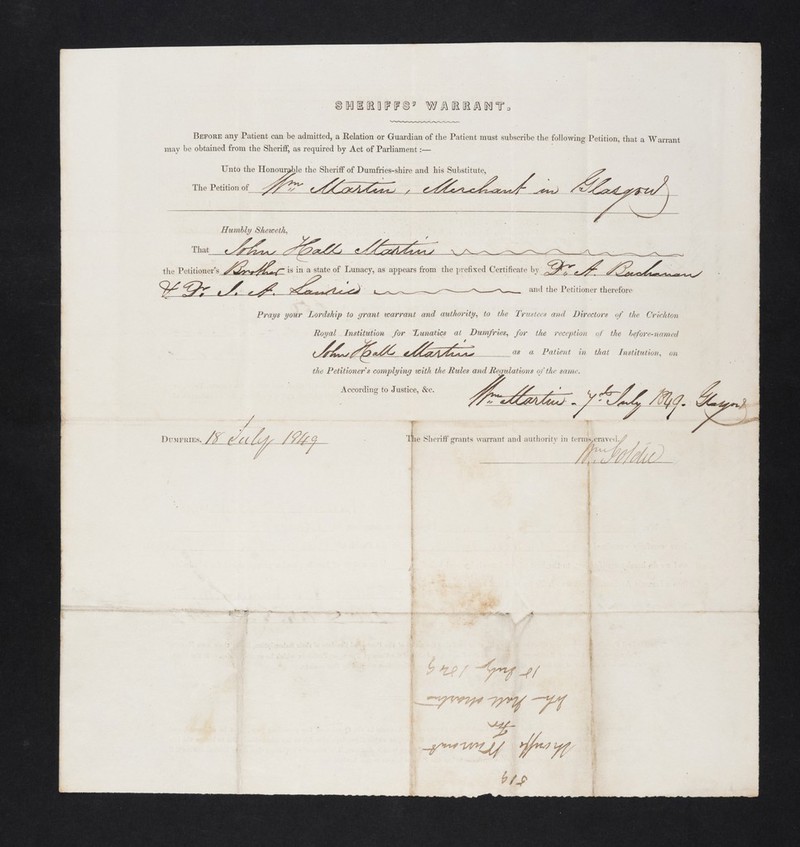 SHERIFFS' WARRANT.
BEFORE any Patient can be admitted, a Relation or Guardian of the Patient must subscribe the following Petition, that a Warrant
may be obtained from the Sheriff, as required by Act of Parliament :—
Unto the Honourable the Sheriff of Dumfries-shire and his Substitute,
The Petition of Wm Martin, Merchant in Glasgow
Humbly Sheweth,
That John Hall Martin
the Petitioner's Brother is in a state of Lunacy, as appears from the prefixed Certificate by Dr. A. Buchanan
& Dr. J. A. Lawrie and the Petitioner therefore
Prays your Lordship to grant warrant and authority, to the Trustees and Directors of the Crichton
Royal Institution for Lunatics at Dumfries, for the reception of the before-named
John Hall Martin as a Patient in that Institution, on
the Petitioner's complying with the Rules and Regulations of the same.
According to Justice, &c.
Wm Martin - 7th July 1849 - Glasgow
DUMFRIES, 18 July 1849 The Sheriff grants warrant and authority in terms craved.
Wm Goldie
519
Sheriffs Warrant
for
John Hall Martin
18 July 1849